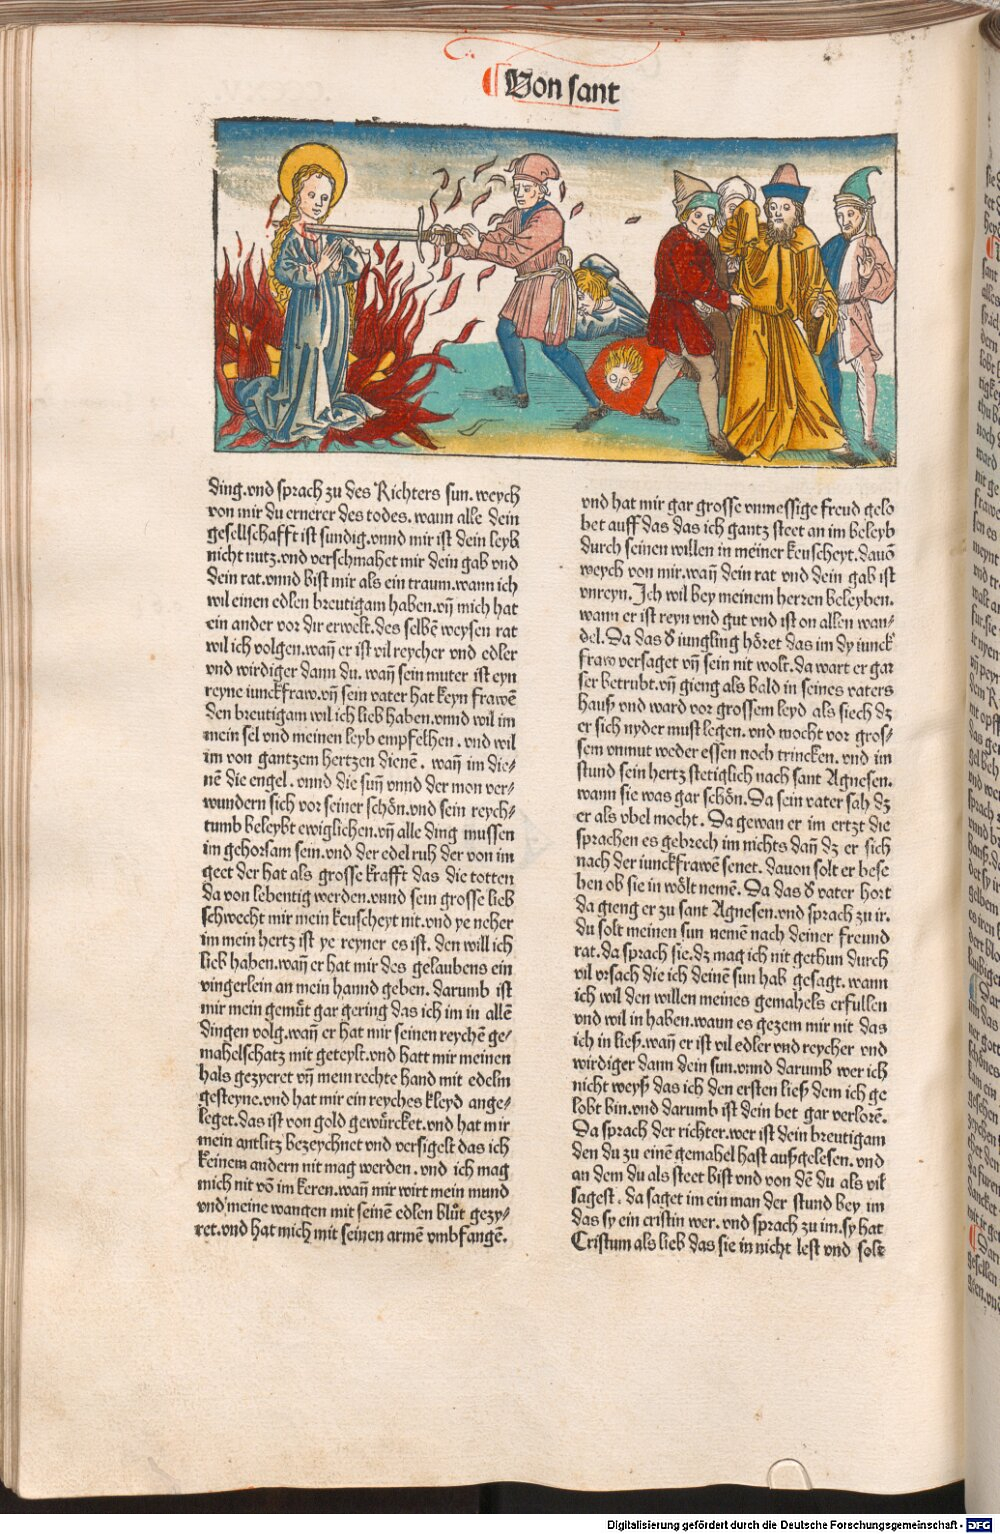 ¶ Von sant
ding.vnd sprach zu des Richters sun.weych
von mir du ernerer des todes.wann alle dein
gesellschafft ist sundig.vnnd mir ist dein leyb
nicht nutz.vnd verschmahet mir dein gab vnd
dein rat.vnnd bist mir als ein traum.wann ich
wil einen edlen breutigam haben.vn̄ mich hat
ein ander vor dir erwelt.des selbē weysen rat
wil ich volgen.wañ er ist vil reycher vnd edler
vnd wirdiger dann du.wañ sein muter ist eyn
reyne iunckfraw.vn̄ sein vater hat keyn frawē
den breutigam wil ich lieb haben.vnnd wil im
mein sel vnd meinen leyb empfelhen.vnd wil
im von gantzem hertzen dienē.wañ im die⸗
nē die engel.vnnd die suñ vnnd der mon ver⸗
wundern sich vor seiner schön.vnd sein reych⸗
tumb beleybt ewiglichen.vn̄ alle ding mussen
im gehorsam sein.vnd der edel ruh der von im
geet der hat als grosse krafft das die totten
da von lebentig werden.vnnd sein grosse lieb
schwecht mir mein keuscheyt nit.vnd ye neher
im mein hertz ist ye reyner es ist.den will ich
lieb haben.wañ er hat mir des gelaubens ein
vingerlein an mein hannd geben.darumb ist
mir mein gemüt gar gering das ich im in allē
dingen volg.wañ er hat mir seinen reychē ge⸗
mahelschatz mit geteylt.vnd hatt mir meinen
hals gezyeret vn̄ mein rechte hand mit edelm
gesteyne.vnd hat mir ein reyches kleyd ange⸗
leget.das ist von gold gewürcket.vnd hat mir
mein antlitz bezeychnet vnd versigelt das ich
keinem andern nit mag werden.vnd ich mag
mich nit vō im keren.wañ mir wirt mein mund
vnd meine wangen mit seinē edlen blůt gezy⸗
ret.vnd hat mich mit seinen armē vmbfangē.
vnd hat mir gar grosse vnmessige freud gelo
bet auff das das ich gantz steet an im beleyb
durch seinen willen in meiner keuscheyt.dauō
weych von mir.wañ dein rat vnd dein gab ist
vnreyn.Ich wil bey meinem herren beleyben.
wann er ist reyn vnd gut vnd ist on allen wan⸗
del.Da das d̕ iungling höret das im dy iunck
fraw versaget vn̄ sein nit wolt.da wart er gar
ser betrubt.vn̄ gieng als bald in seines vaters
hauß vnd ward vor grossem leyd als siech dz
er sich nyder must legen.vnd mocht vor gros⸗
sem vnmut weder essen noch trincken.vnd im
stund sein hertz stetiglich nach sant Agnesen.
wann sie was gar schön.Da sein vater sah dz
er als vbel mocht.Da gewan er im ertzt die
sprachen es gebrech im nichts dañ dz er sich
nach der iunckfrawē senet.dauon solt er bese
ben ob sie in wölt nemē.Da das d̕ vater hort
da gieng er zu sant Agnesen.vnd sprach zu ir.
du solt meinen sun nemē nach deiner freund
rat.da sprach sie.dz mag ich nit gethun durch
vil vrsach die ich deinē sun hab gesagt.wann
ich wil den willen meines gemahels erfullen
vnd wil in haben.wann es gezem mir nit das
ich in ließ.wañ er ist vil edler vnd reycher vnd
wirdiger dann dein sun.vnnd darumb wer ich
nicht weyß das ich den ersten ließ dem ich ge
lobt bin.vnd darumb ist dein bet gar verlorē.
Da sprach der richter.wer ist dein breutigam
den du zu einē gemahel hast außgelesen.vnd
an dem du als steet bist vnd von dē du als vil
sagest.da saget im ein man der stund bey im
das sy ein cristin wer.vnd sprach zu im.sy hat
Cristum als lieb das sie in nicht lest vnd solt
Digitalisierung gefördert durch die Deutsche Forschungsgemeinschaft - DFG